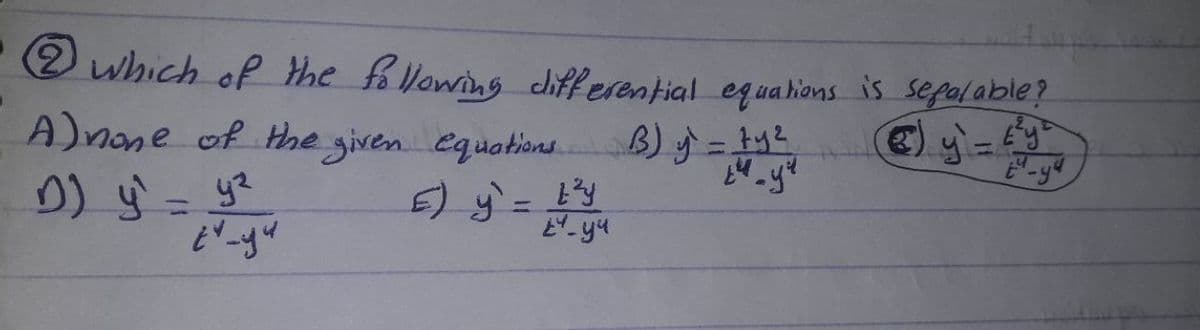 ② which of the following differential equations is separable?
A) none of the given equations B) y' = ty²/(t⁴-y⁴) C) y' = t²y²/(t⁴-y⁴)
D) y' = y²/(t⁴-y⁴) E) y' = t²y/(t⁴-y⁴)